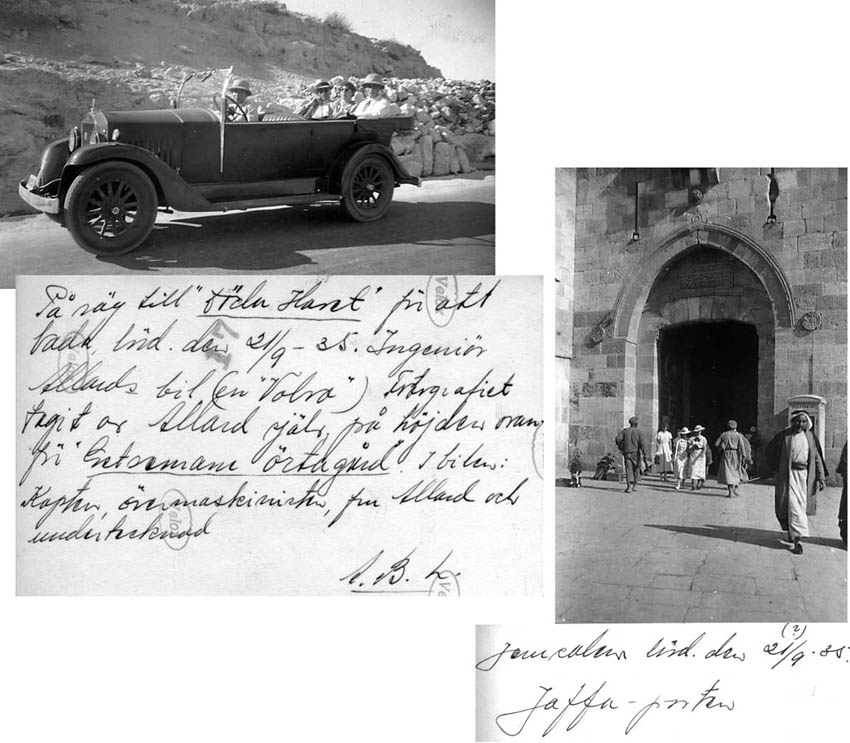 På väg till "Döda Havet" för att
bada, lörd. den 21/9 - 35. Ingeniör
Allards bil (en "Volvo") Fotografiet
tagit av Allard själv, på höjden ovan
för "Getsemane örtagård". I bilen:
Kapten, övermaskinisten, fru Allard och
undertecknad
A. B. L.
Velox
Velox
Velox
Velox
17
(?)
Jerusalem lörd. den 21/9 - 35.
Jaffa-porten